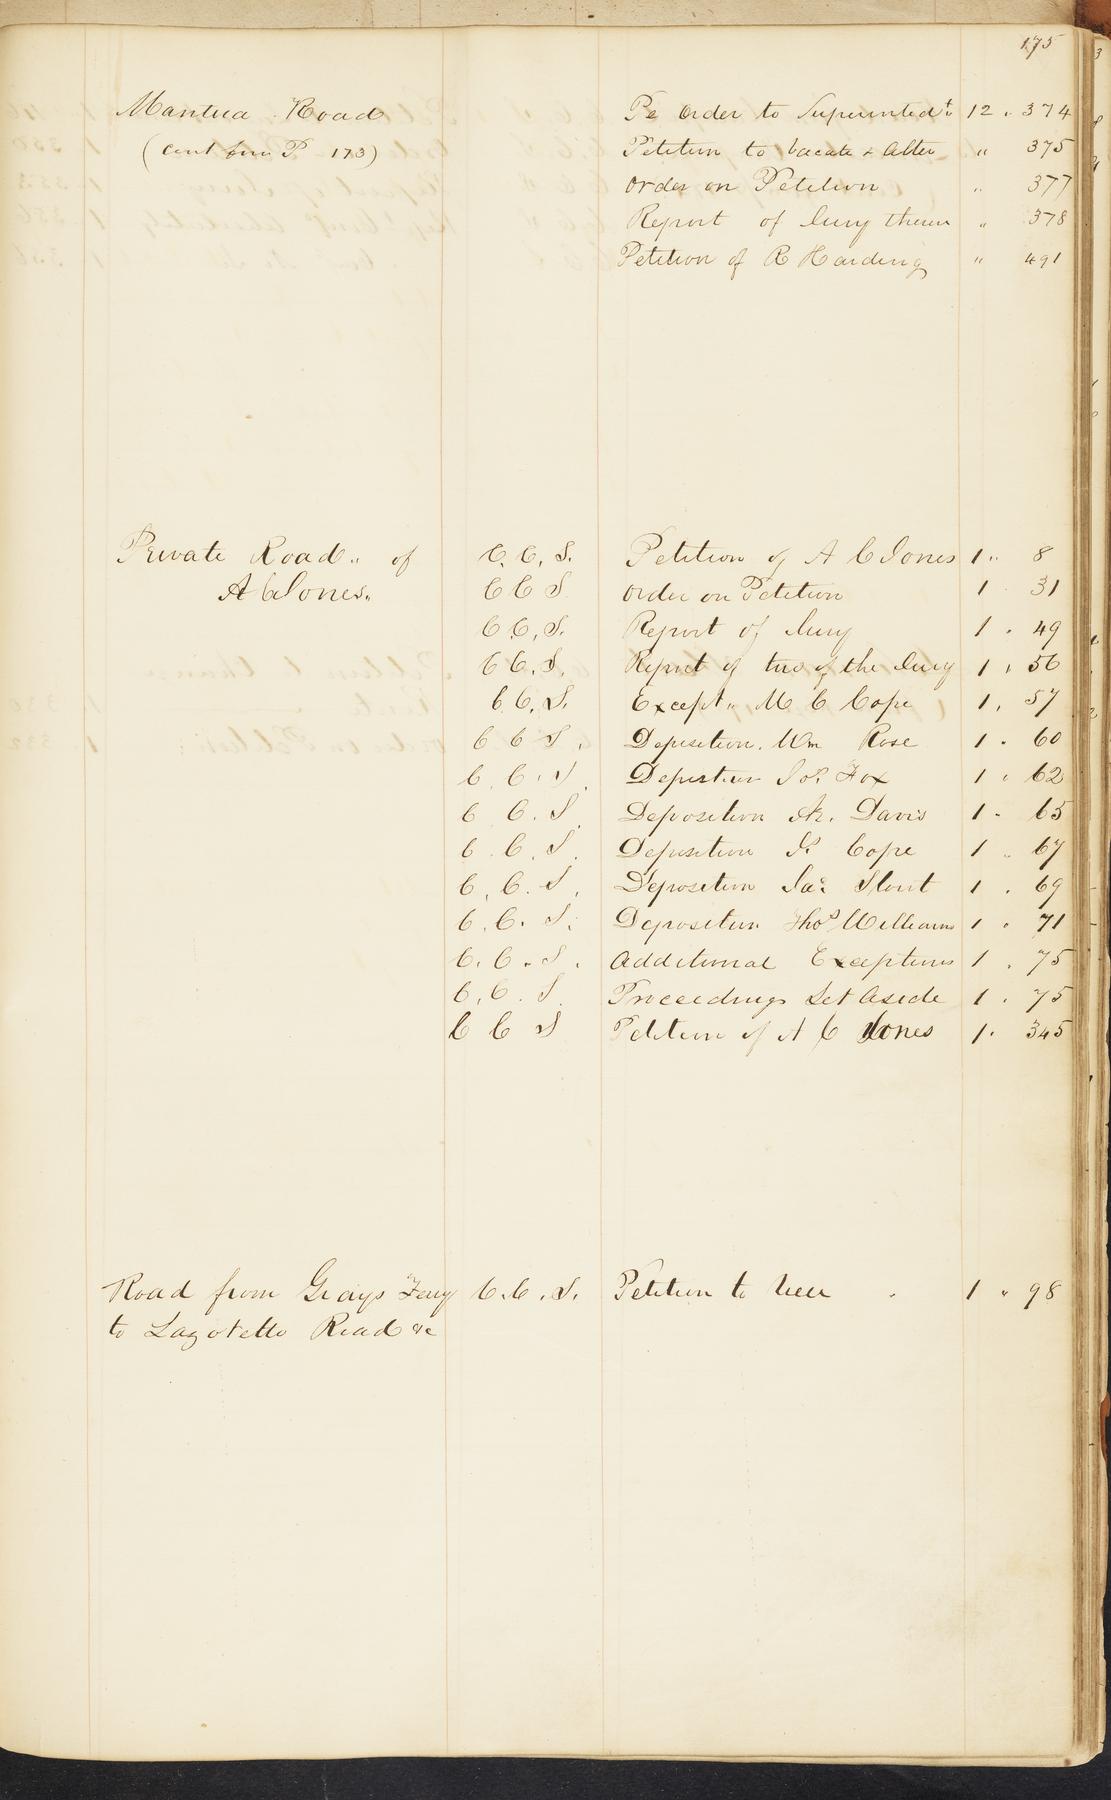 175
Mantua Road Pe order to Superintedt. 12 " 374
(cont from P 173) Petition to vacate & alter " 375
order on Petition " 377
Report of Jury thereon " 378
Petition of R Harding " 491
Private Road " of C. C. S. Petition of A C Jones 1 " 8
A C Jones. C C S order on Petition 1 31
C C. S. Report of Jury 1 . 49
C C. S. Report of two of the Jury 1 . 56
C. C. S. Except " M C Cope 1 . 57
C C S. Deposition. Wm Rose 1 . 60
C. C. S. Deposition Jos. Fox 1 . 62
C C. S. Deposition Davis 1 . 65
C. C. S. Deposition Cope 1 . 67
C. C. S. Deposition Jas. Stout 1 . 69
C. C. S. Deposition Thos Williams 1 . 71
C. C. S. Additional Exceptions 1 . 75
C. C. S. Proceedings Set Aside 1 . 75
C C S Petition of A C Jones 1 . 345
Road from Grays Ferry C. C. S. Petition to 1 " 98
to Lazoretto Road &c